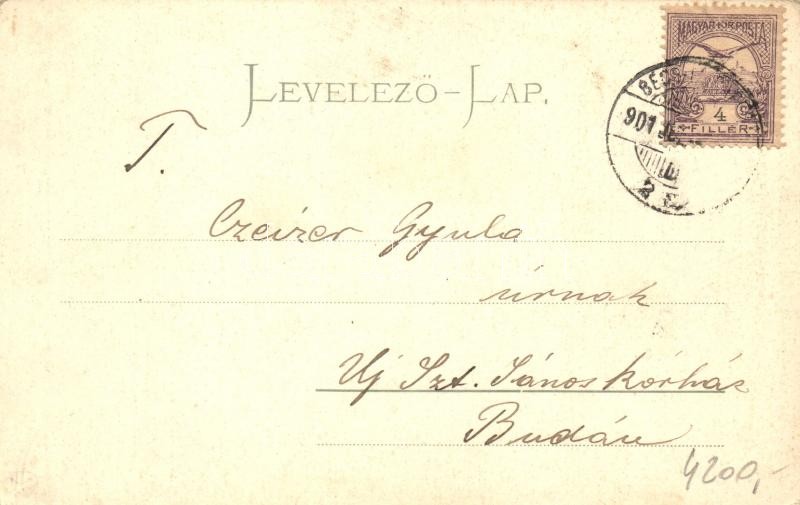 MAGYAR KIR. POSTA
4
FILLÉR
901
LEVELEZŐ-LAP.
T.
Czeizer Gyula
úrnak
Uj Szt. Jánoskórház
Budán
4200,-